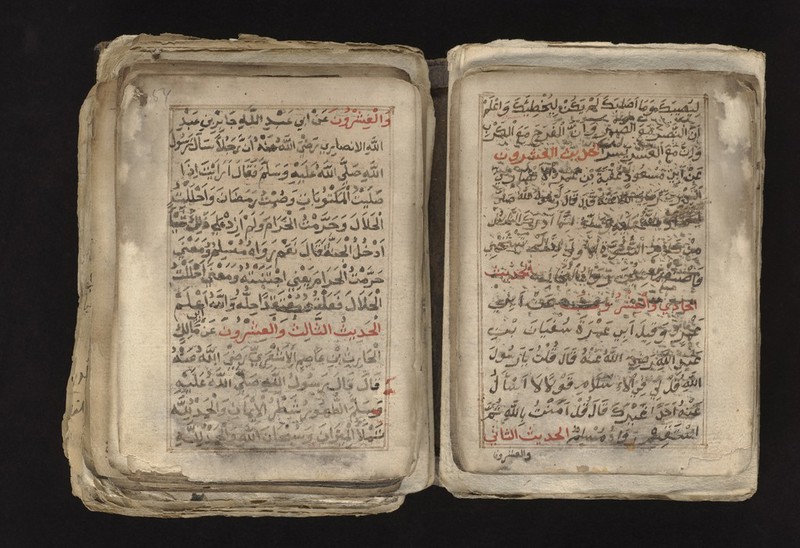 ليصيبك وما اصابك لم يكن ليخطئك واعلم
ان النصر مع الصبر وان الفرج مع الكرب
وان مع العسر يسرا الحديث العشرون
عن ابي مسعود عقبة بن عمرو الانصاري
رضي الله عنه قال قال رسول الله صلى
الله عليه وسلم ان مما ادرك الناس
من كلام النبوة الاولى اذا لم تستحي
فاصنع ما شئت رواه البخاري الحديث
الحادي والعشرون عن ابي
عمرو وقيل ابي عمرة سفيان بن
عبد الله رضي الله عنه قال قلت يا رسول
الله قل لي في الاسلام قولا لا اسأل
عنه احدا غيرك قال قل آمنت بالله ثم
استقم رواه مسلم الحديث الثاني
والعشرون
والعشرون عن ابي عبد الله جابر بن عبد
الله الانصاري رضي الله عنه ان رجلا سأل رسول
الله صلى الله عليه وسلم فقال ارايت اذا
صليت المكتوبات وصمت رمضان واحللت
الحلال وحرمت الحرام ولم ازد على ذلك شيئا
ادخل الجنة قال نعم رواه مسلم ومعنى
حرمت الحرام يعني اجتنبته ومعنى احللت
الحلال فعلته معتقدا حله والله اعلم
الحديث الثالث والعشرون عن ابي مالك
الحارث بن عاصم الاشعري رضي الله عنه
قال قال رسول الله صلى الله عليه
وسلم الطهور شطر الايمان والحمد لله
تملأ الميزان وسبحان الله والحمد لله